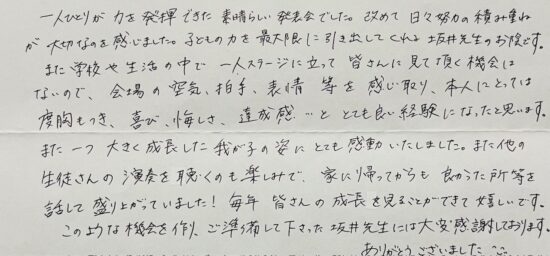 一人ひとりが力を発揮できた素晴らしい発表会でした。改めて日々努力の積み重ね
が大切なのを感じました。子どもの力を最大限に引き出してくれる坂井先生のお陰です。
また学校や生活の中で一人ステージに立って皆さんに見て頂く機会は
ないので、会場の空気、拍手、表情 等を感じ取り、本人にとっては
度胸もつき、喜び、悔しさ、達成感…ととても良い経験になったと思います。
また一つ大きく成長した我が子の姿にとても感動いたしました。また他の
生徒さんの演奏を聴くのも楽しみで、家に帰ってからも良かった所等を
話して盛り上がっていました!毎年 皆さんの成長を見ることができて嬉しいです。
このような機会を作り、ご準備して下さった坂井先生には大変感謝しております。
ありがとうございました